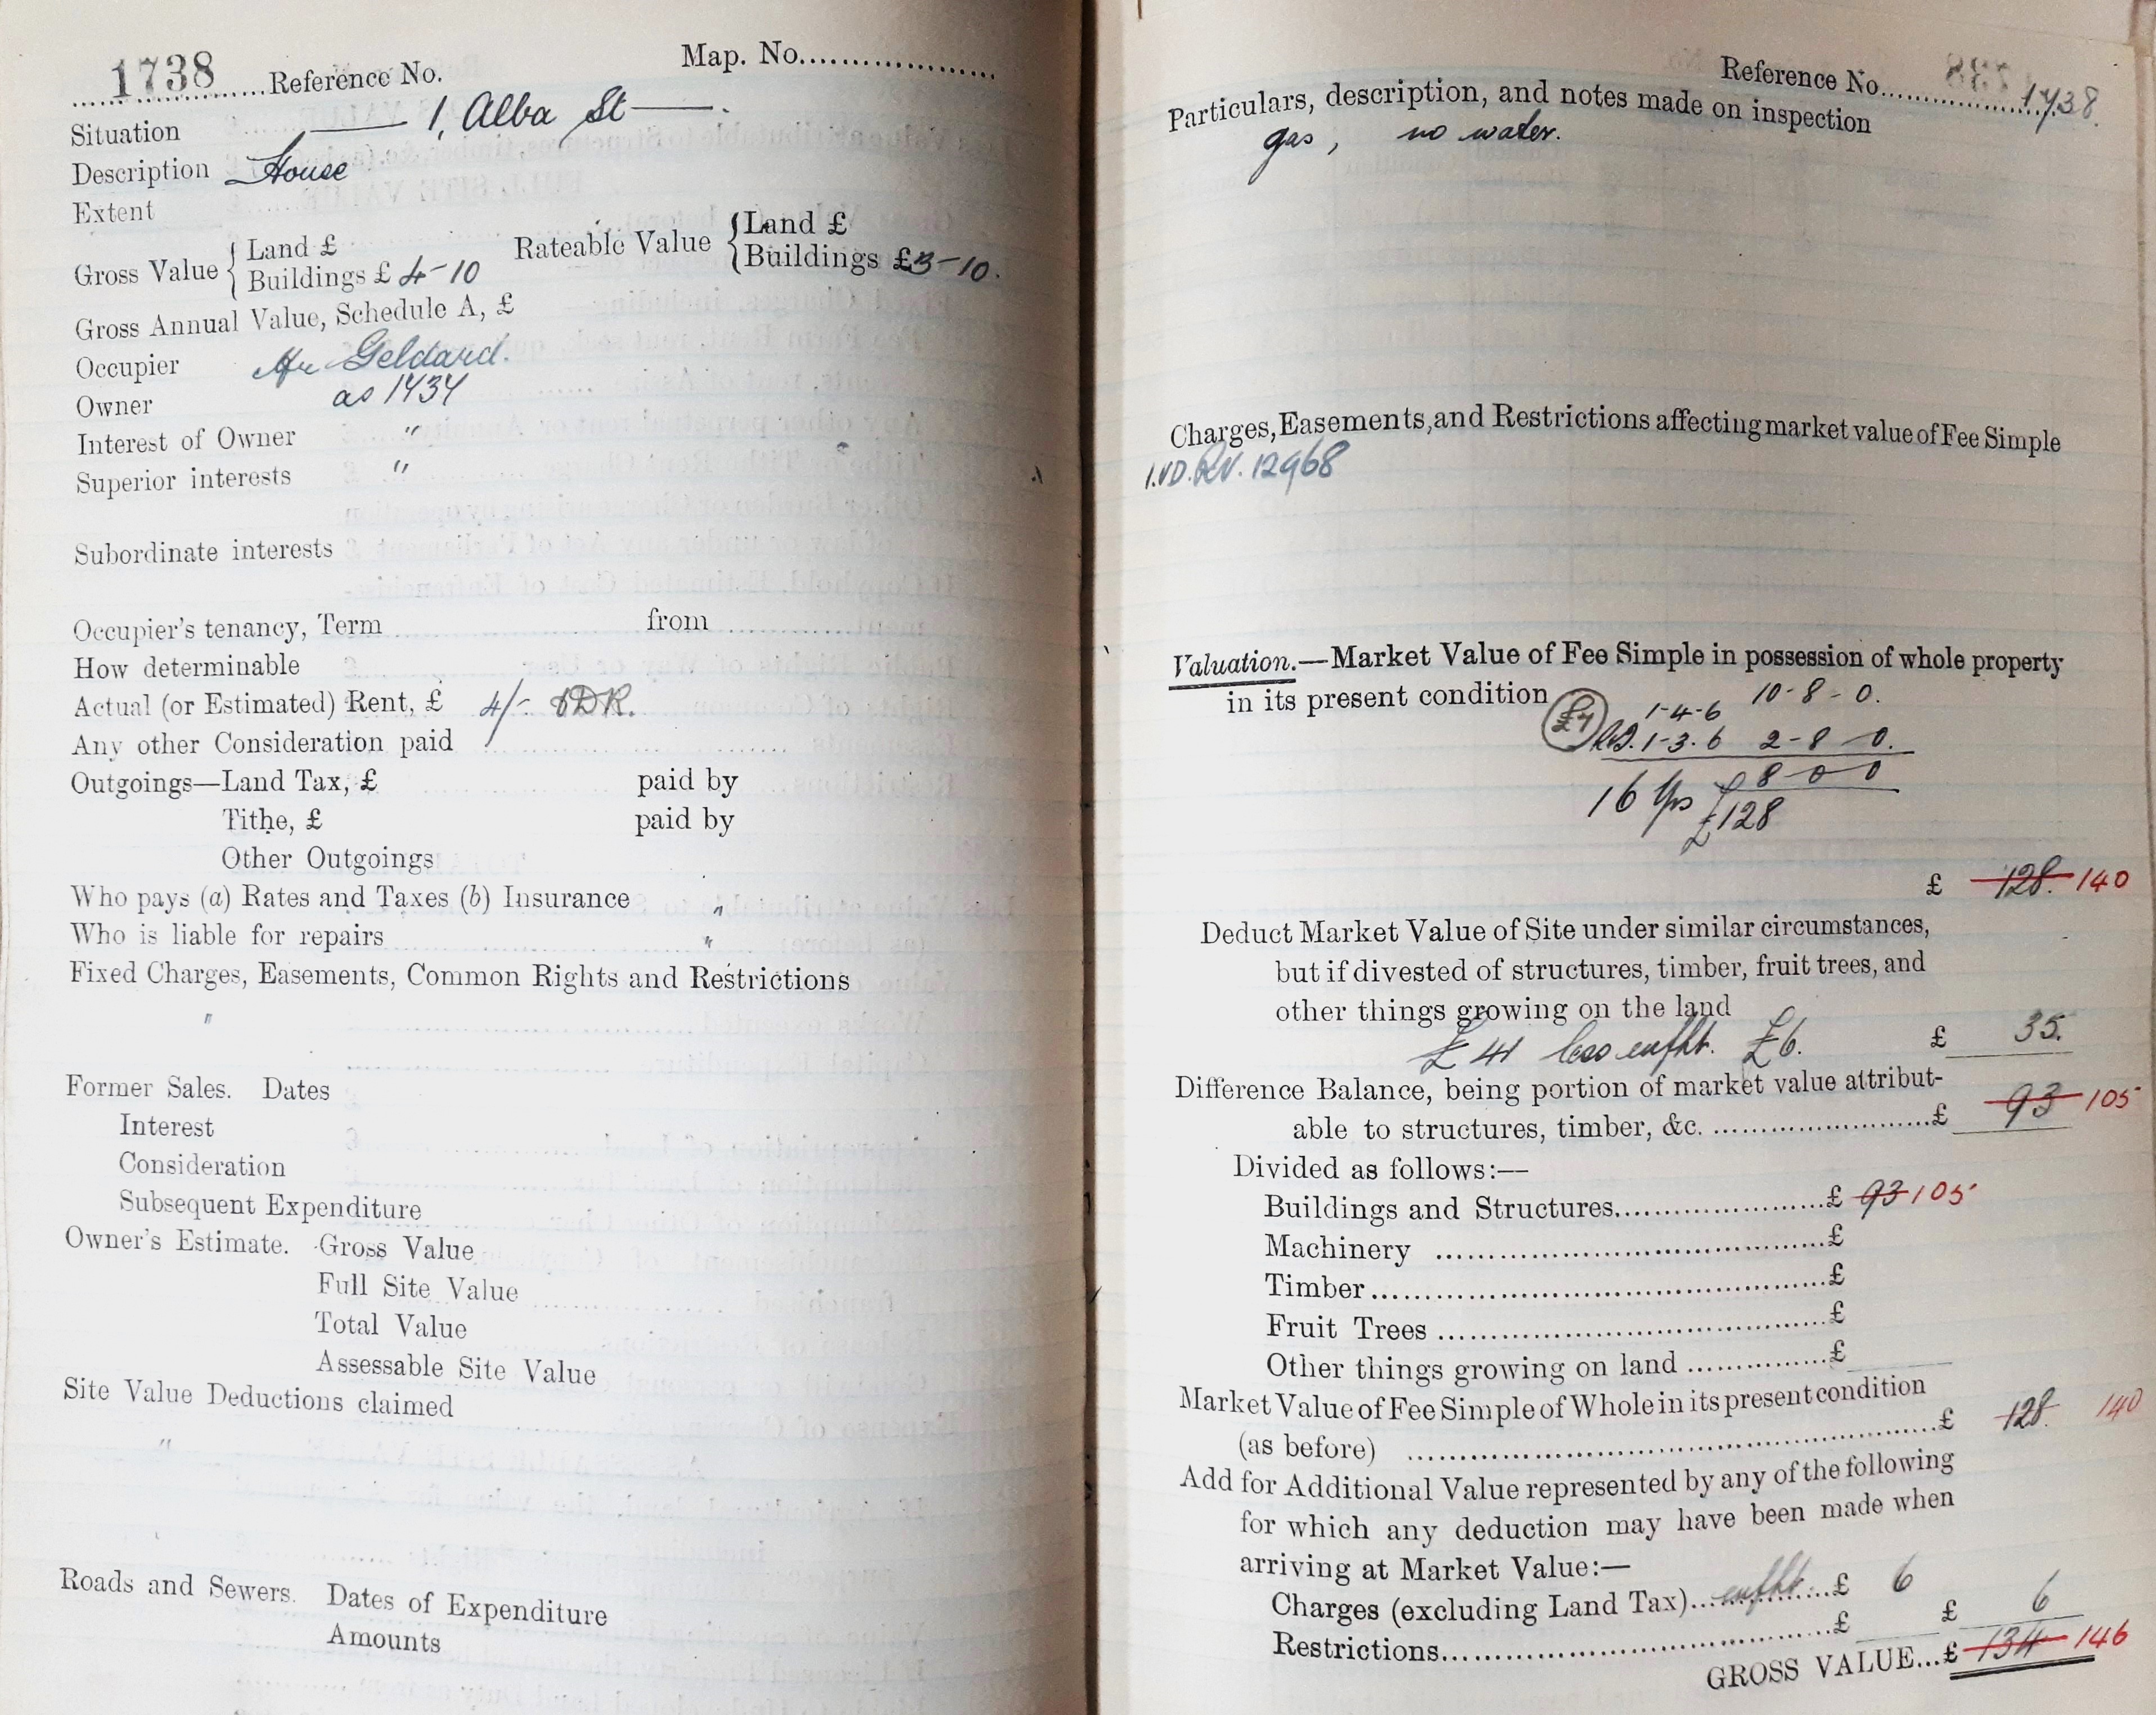 1738 Reference No. Map. No.
Situation 1, Alba St
Description House
Extent
Gross Value { Land £ Rateable Value { Land £
Buildings £ 4-10 Buildings £3-10.
Gross Annual Value, Schedule A, £
Occupier Geldard.
Owner as 1434
Interest of Owner "
Superior interests "
Subordinate interests
Occupier's tenancy, Term from
How determinable
Actual (or Estimated) Rent, £ 4/-
Any other Consideration paid
Outgoings—Land Tax, £ paid by
Tithe, £ paid by
Other Outgoings
Who pays (a) Rates and Taxes (b) Insurance "
Who is liable for repairs "
Fixed Charges, Easements, Common Rights and Restrictions
"
Former Sales. Dates
Interest
Consideration
Subsequent Expenditure
Owner's Estimate. Gross Value
Full Site Value
Total Value
Assessable Site Value
Site Value Deductions claimed
"
Roads and Sewers. Dates of Expenditure
Amounts
Reference No. 1738.
Particulars, description, and notes made on inspection
gas, no water.
Charges, Easements, and Restrictions affecting market value of Fee Simple
12968
Valuation.—Market Value of Fee Simple in possession of whole property
in its present condition
1-4-6 10-8-0.
1-3-6 2-8-0.
16 Yrs 8-0-0
£128
£ 128. 140
Deduct Market Value of Site under similar circumstances,
but if divested of structures, timber, fruit trees, and
other things growing on the land
£41 less enfht. £6. £ 35.
Difference Balance, being portion of market value attribut-
able to structures, timber, &c. £ 93 105
Divided as follows:—
Buildings and Structures £ 93 105
Machinery £
Timber £
Fruit Trees £
Other things growing on land £
Market Value of Fee Simple of Whole in its present condition
(as before) £ 128. 140
Add for Additional Value represented by any of the following
for which any deduction may have been made when
arriving at Market Value:—
Charges (excluding Land Tax) enfht. £ 6
Restrictions £ £ 6
GROSS VALUE...£ 134 146